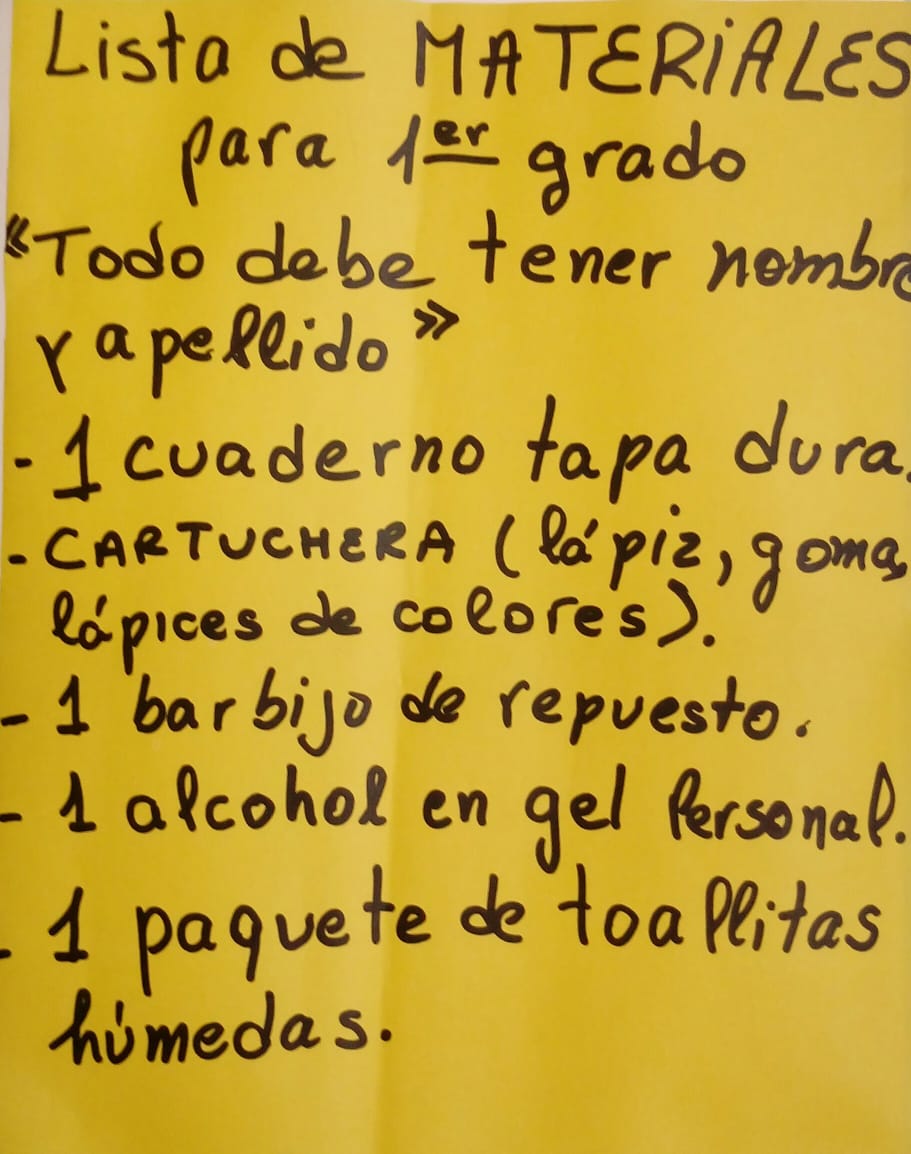 Lista de MATERiALES
para 1er grado
«Todo debe tener nombre
y apellido»
- 1 cuaderno tapa dura.
- CARTUCHERA (lápiz, goma,
lápices de colores).
- 1 barbijo de repuesto.
- 1 alcohol en gel Personal.
- 1 paquete de toallitas
húmedas.